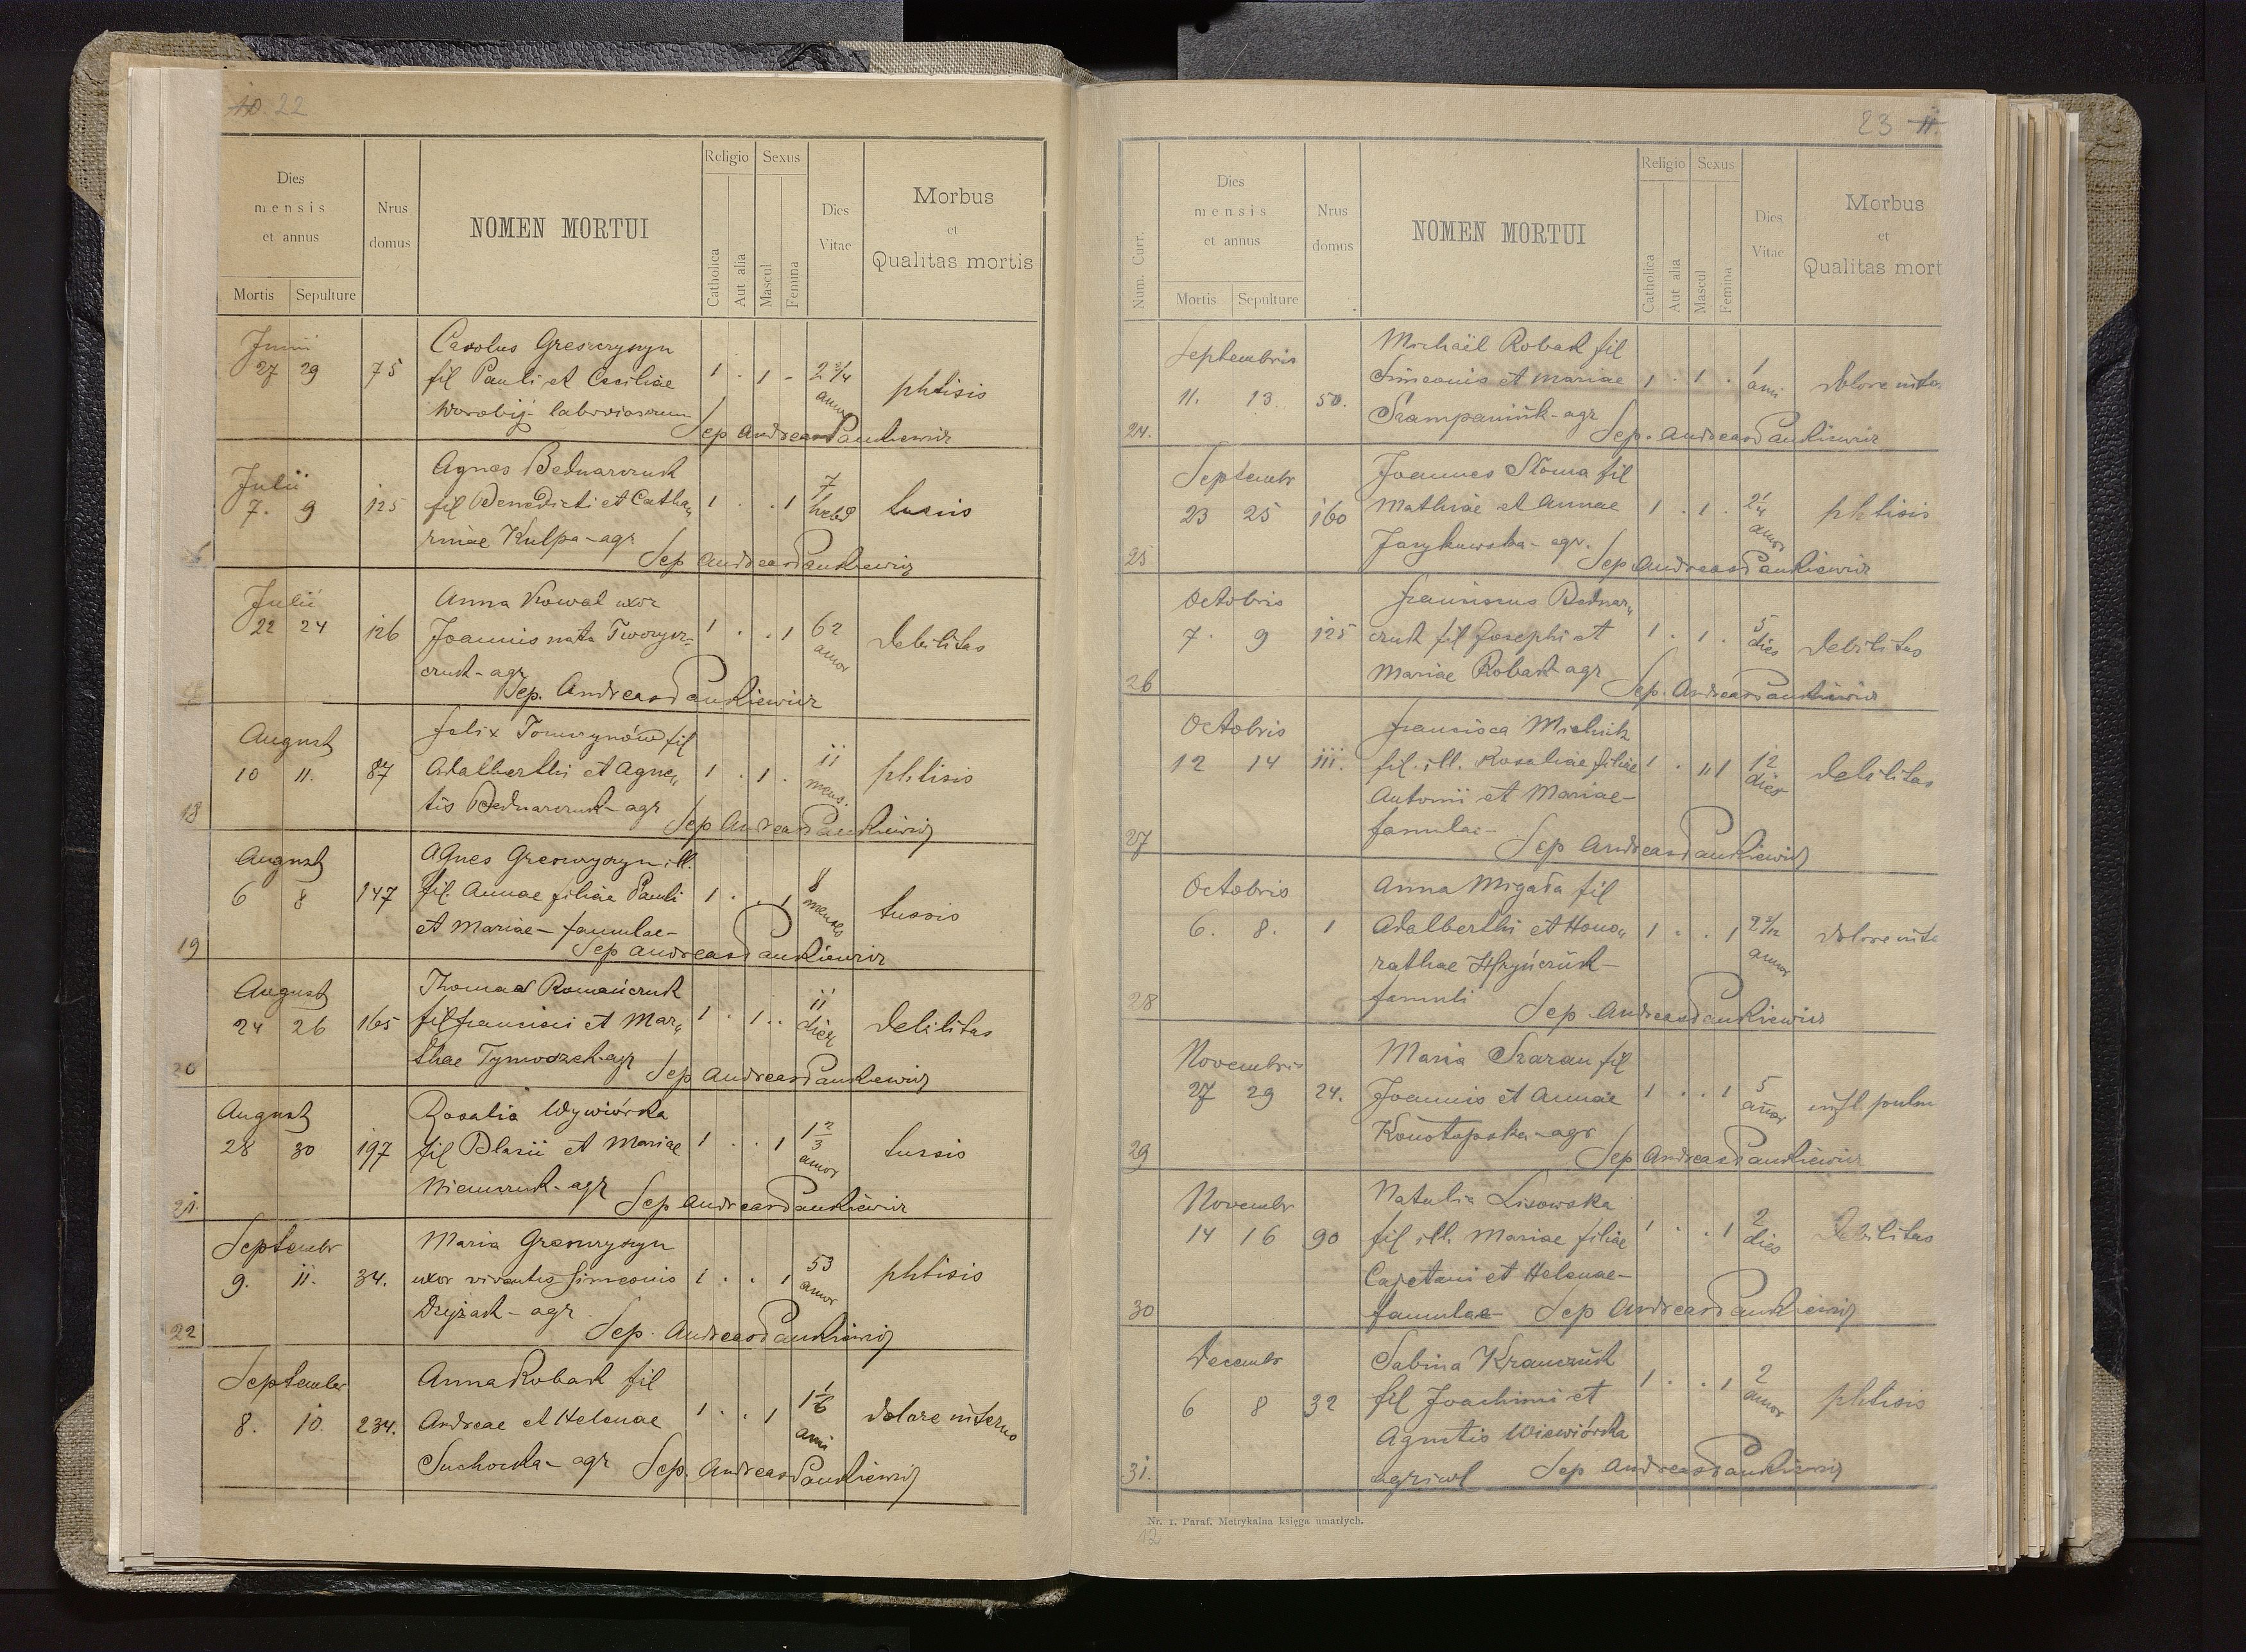 10. 22
Dies mensis et annus
Mortis Sepulture
Nrus domus
NOMEN MORTUI
Religio
Catholica
Aut alia
Sexus
Mascul
Femina
Dies Vitae
Morbus et Qualitas mortis
Junii
Carolus Greszczyszyn
27 29 75 fil Pauli et Ceciliae 1 . 1 - 2 3/4 annor phtisis
Worobij - laboriosorum
Sep Andreas Pankiewicz
Julii
Agnes Bednarczuk
7. 9 125 fil Benedicti et Catha„ 1 . . 1 7 hebd tussis
rinae Kulpa - agr
Sep Andreas Pankiewicz
Julii
Anna Kowal uxor
22 24 126 Joannis nata Tworycz- 1 . . 1 62 annor debilitas
czuk - agr
Sep. Andreas Pankiewicz
August
Felix Tomczynów fil
18 10 11. 87 Adalberthi et Agne„ 1 . 1 . 11 mens. phtisis
tis Bednarczuk - agr
Sep Andreas Pankiewicz
August
Agnes Greszczyszyn ill.
19 6 8 147 fil. Annae filiae Pauli 1 . . 1 8 menses tussis
et Mariae - famulae -
Sep Andreas Pankiewicz
August
Thomas Romańczuk
20 24 26 165 fil Francisci et Mar„ 1 . 1 . . 11 dies debilitas
thae Tymoszek - agr
Sep Andreas Pankiewicz
August
Rosalia Wywiórka
21. 28 30 197 fil Blasii et Mariae 1 . . 1 1 2/3 annor tussis
Niemczuk - agr
Sep Andreas Pankiewicz
Septembr
Maria Greszczyszyn
22 9. 11. 34. uxor viventis Simeonis 1 . . 1 53 annor phtisis
Dzyżak - agr
Sep. Andreas Pankiewicz
September
Anna Robak fil
8. 10. 234. Andreae et Helenae 1 . . 1 1 1/6 anni dolore interno
Suchocka - agr
Sep. Andreas Pankiewicz
23 11.
Num. Curr.
Dies mensis et annus
Mortis Sepulture
Nrus domus
NOMEN MORTUI
Religio
Catholica
Aut alia
Sexus
Mascul
Femina
Dies Vitae
Morbus et Qualitas mort
Septembris
Michaël Robak fil
24. 11. 13. 50. Simeonis et Mariae 1 . 1 . 1 anni dolore inter
Szampaniuk - agr
Sep. Andreas Pankiewicz
Septembr
Joannes Słoma fil
25 23 25 160 Mathiae et Annae 1 . 1 . 2 1/4 annor phtisis
Jarykowska - agr.
Sep Andreas Pankiewicz
Octobris
Franciscus Bednar„
26 7. 9 125 czuk fil Josephi et 1 . 1 . 5 dies debilitas
Mariae Robak agr
Sep. Andreas Pankiewicz
Octobris
Francisca Michnik
27 12 14 111. fil. ill. Rosaliae filiae 1 . 1 12 dies debilitas
Antonii et Mariae -
famulae -
Sep Andreas Pankiewicz
Octobris
Anna Migała fil
28 6. 8. 1 Adalberthi et Hono„ 1 . . 1 annor dolore inte
rathae Hryńczuk -
famuli
Sep Andreas Pankiewicz
Novembris
Maria Szaran fil
29 27 29 24. Joannis et Annae 1 . . 1 5 annor infl. pulm
Konotopska - agr
Sep Andreas Pankiewicz
Novembr
Natalia Lisowska
30 14 16 90 fil ill. Mariae filiae 1 . . 1 2 dies Debilitas
Cajetani et Helenae -
famulae - Sep Andreas Pankiewicz
Decembr
Sabina Krawczuk
31. 6 8 32 fil Joachimi et 1 . . 1 2 annor phtisis
Agnetis Wiewiórka
agricol Sep Andreas Pankiewicz
Nr. 1. Paraf. Metrykalna księga umarłych.
12